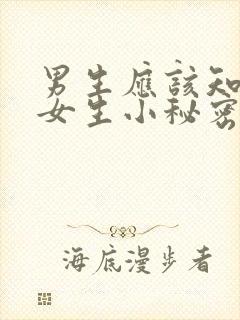 男生應該知
女生小秘密
海底漫步者